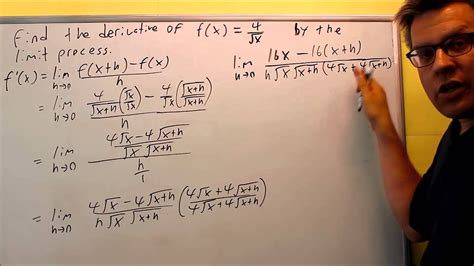 Find the derivative of f(x) = 4/√x by the
limit process.
f'(x) = lim h→0 (f(x+h) - f(x))/h
= lim h→0 (4/√(x+h) (√x/√x) - 4/√x (√(x+h)/√(x+h)))/h
= lim h→0 ((4√x - 4√(x+h))/(√x √(x+h)))/(h/1)
= lim h→0 (4√x - 4√(x+h))/(h√x √(x+h)) ((4√x + 4√(x+h))/(4√x + 4√(x+h)))
lim h→0 (16x - 16(x+h))/(h√x √(x+h) (4√x + 4√(x+h)))